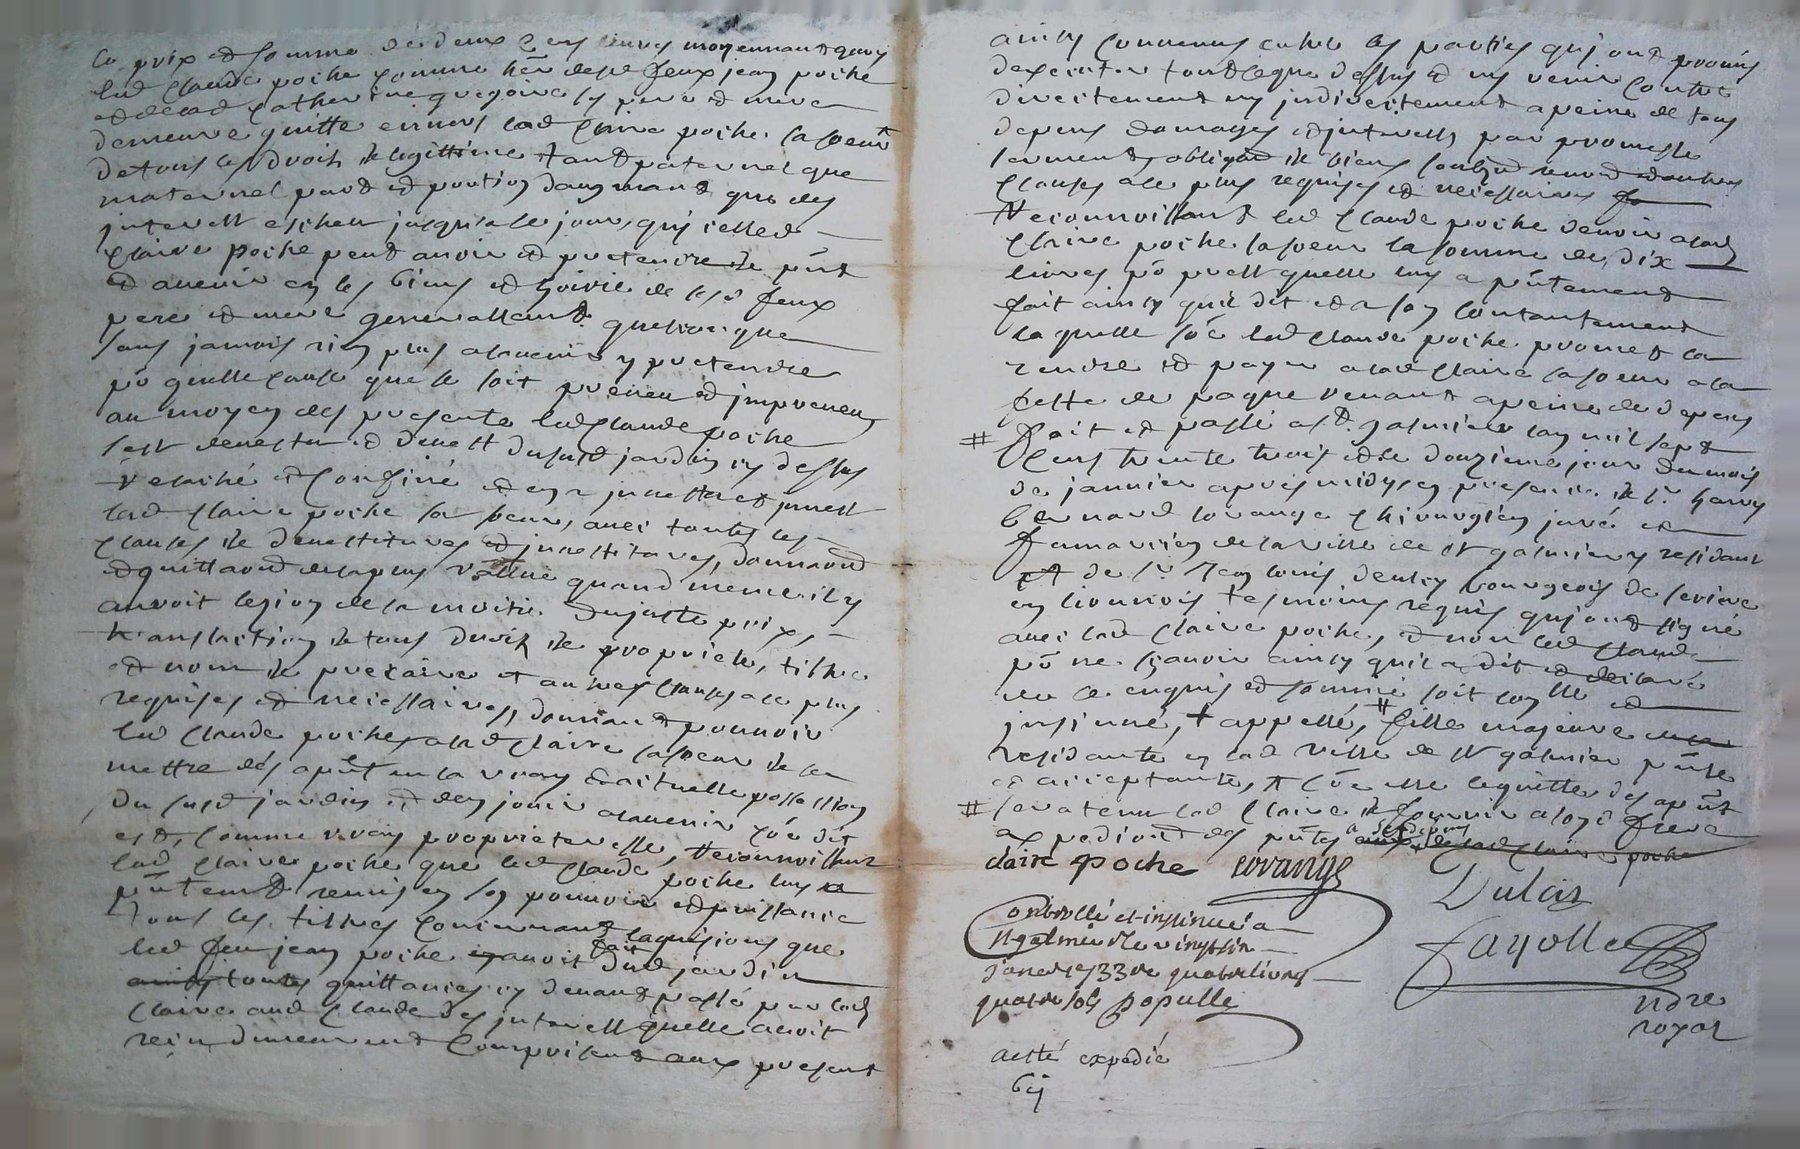 le prix et somme de deux cens livres moyennant quoy
led Claude poche comme hér desd feux jean poche
et delad Catherine gregoire ses pere et mere
demeure quitte envers lad Claire poche sa soeur
de tous les droits de legittime tant paternel que
maternel part et portion daugmant que des
interest escheu jusqu'a ce jour, qui celled
Claire poche peut avoir et pretendre de pnt
et avenir en les biens et hoirie de sesd feux
pere et mere generallemt quelconque
sans jamais rien plus alavenir y pretendre
po quelle cause que ce soit preveu et impreveu
au moyen des presente led Claude poche
sest devestu et devest dususd jardin cy dessus
et confiné et en a investu et invest
lad Claire poche sa soeur, avec toutes les
clauses de devestitures et investitures, donnaon
et quittaon de la plus vallue quand meme il y
auroit lezion de la moitié du juste prix,
translaction de tous droits de proprieté, titre
et nom de precaire et autres clauses a ce plus
requises et necessaires, donnant pouvoir
led Claude poche a lad Claire sa soeur de se
mettre dés apnt en la vraye et actuelle possession
du susd jardin et den jouir alavenir coe dit
est, comme vraye proprieteresse, reconnoissant
lad Claire poche que led Claude poche luy a
pntemt remis en son pouvoir et puissance
tous les tittres concernant laquisions que
led feu jean poche avoit fait dud jardin
ainsy toutes quittances cy devant passé par lad
Claire aud Claude des interest quelle avoit
reçu dument comprisent aux present
ainsy convenus entre les parties qui ont promis
dexecuter tout ceque dessus et ny venir contre
directement ny indirectement a peine de tous
depens domages et interests par promesse
serment, obligaon de biens soubz renon et autres
clauses a ce plus requises et necessaires
Reconnoissant led Claude poche devoir a lad
Claire poche sa soeur la somme de dix
livres po prest quelle luy a pntement
fait ainsy quil dit et a son contantement
la quelle soe led Claude poche promet la
rendre et payer a lad Claire sa soeur a la
feste de paque venant a peine de depens
# fait et passé a St galmier lan mil sept
cens trente trois et le douzieme jour du mois
de janvier apres midy en presence de Sr
bernard lorange chirurgien juré et
de la ville de St galmier y residant
et de Sr jean louis dulin bourgeois de
en lionnois tesmoins requis qui ont signé
avec lad Claire poche, et non led Claude
po ne sçavoir ainsy quil a dit et declaré
de ce enquis et sommé soit et
insinué, + appellé, # fille majeure
residante en lad ville de St galmier pnte
et acceptante, + coe elle le quitte des apnt
# sera tenu lad Claire de fournir a sond frere
expedion des pntes a ses depens
claire poche lorange
Dulin
controllé et insinué a
St galmier le vingt six
janer 1733 re quatre livres
quatre sols populle
fayolle
ndre
royal
acte expedié
6 ij